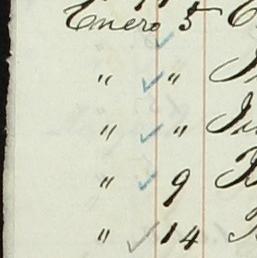 Enero 5
" "
" "
" 9
" 14